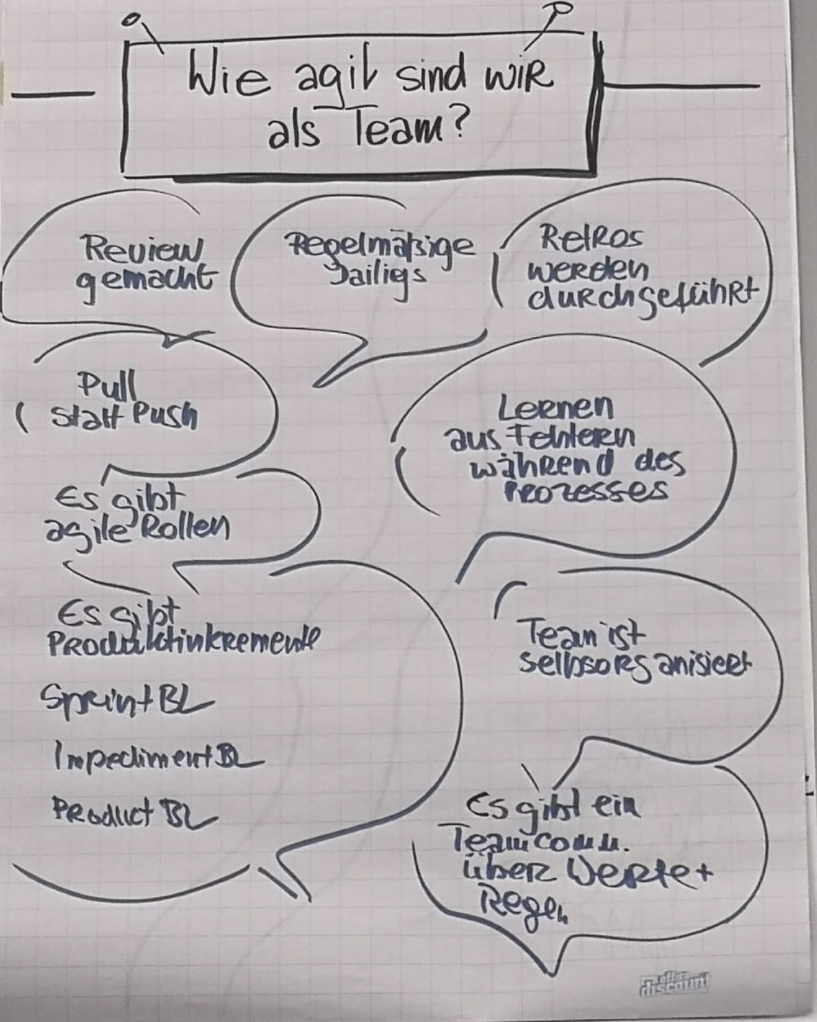 Wie agil sind wir
als Team?
Review
gemacht
Regelmäßige
Dailigs
Retros
werden
durchgeführt
Pull
statt Push
Lernen
aus Fehlern
während des
Prozesses
Es gibt
agile Rollen
Es gibt
Produktinkremente
Sprint BL
Impediment BL
Product BL
Team ist
selbsorganisiert
Es gibt ein
Teamcomm.
über Werte +
Regeln
office
discount